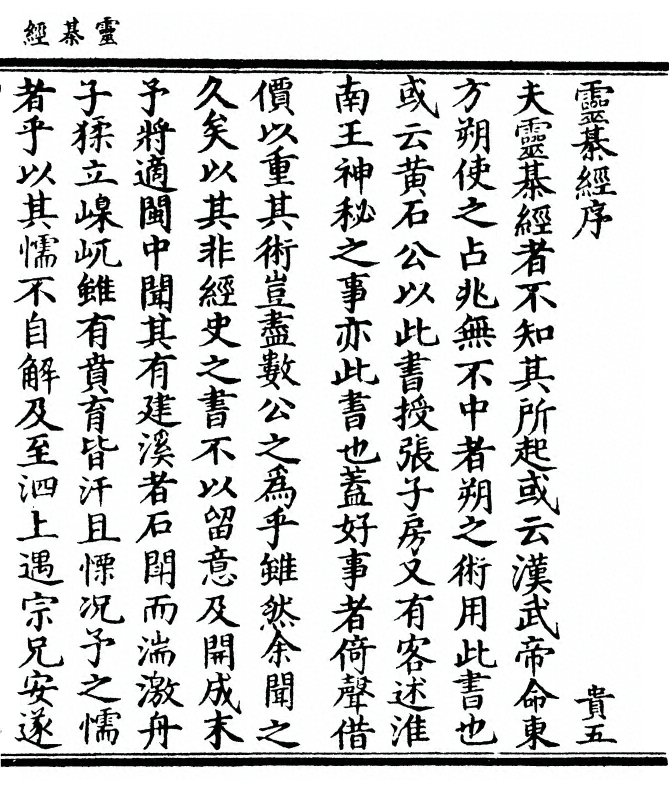 靈棊經
靈棊經序
貴五
夫靈棊經者不知其所起或云漢武帝命東
方朔使之占兆無不中者朔之術用此書也
或云黃石公以此書授張子房又有客述淮
南王神秘之事亦此書也蓋好事者倚聲借
價以重其術豈盡數公之為乎雖然余聞之
久矣以其非經史之書不以留意及開成末
予將適閩中聞其有建溪者石閗而湍激舟
子猱立㠔屼雖有賁育皆汗且慄况予之懦
者乎以其懦不自解及至泗上遇宗兄安遂